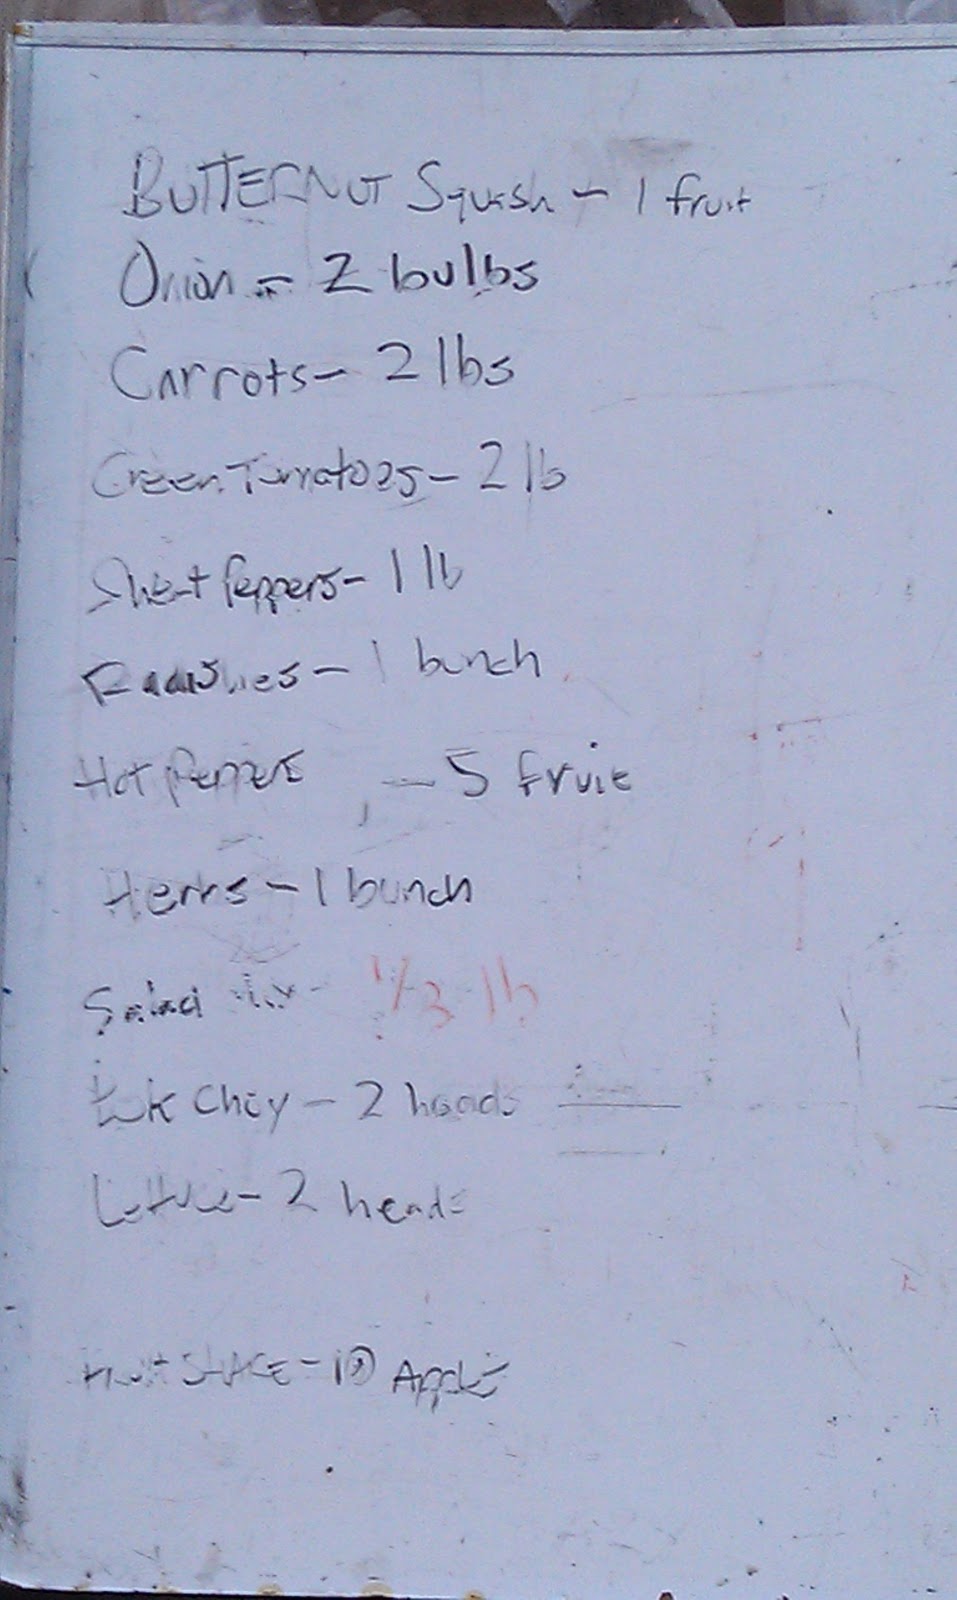 BUTTERNUT Squash - 1 fruit
Onion - 2 bulbs
Carrots - 2 lbs
Green Tomatoes - 2 lb
Sweet Peppers - 1 lb
Radishes - 1 bunch
Hot Peppers - 5 fruit
Herbs - 1 bunch
Salad Mix - 1/3 lb
Bok Choy - 2 heads
Lettuce - 2 heads
Fruit SHARE - Apple